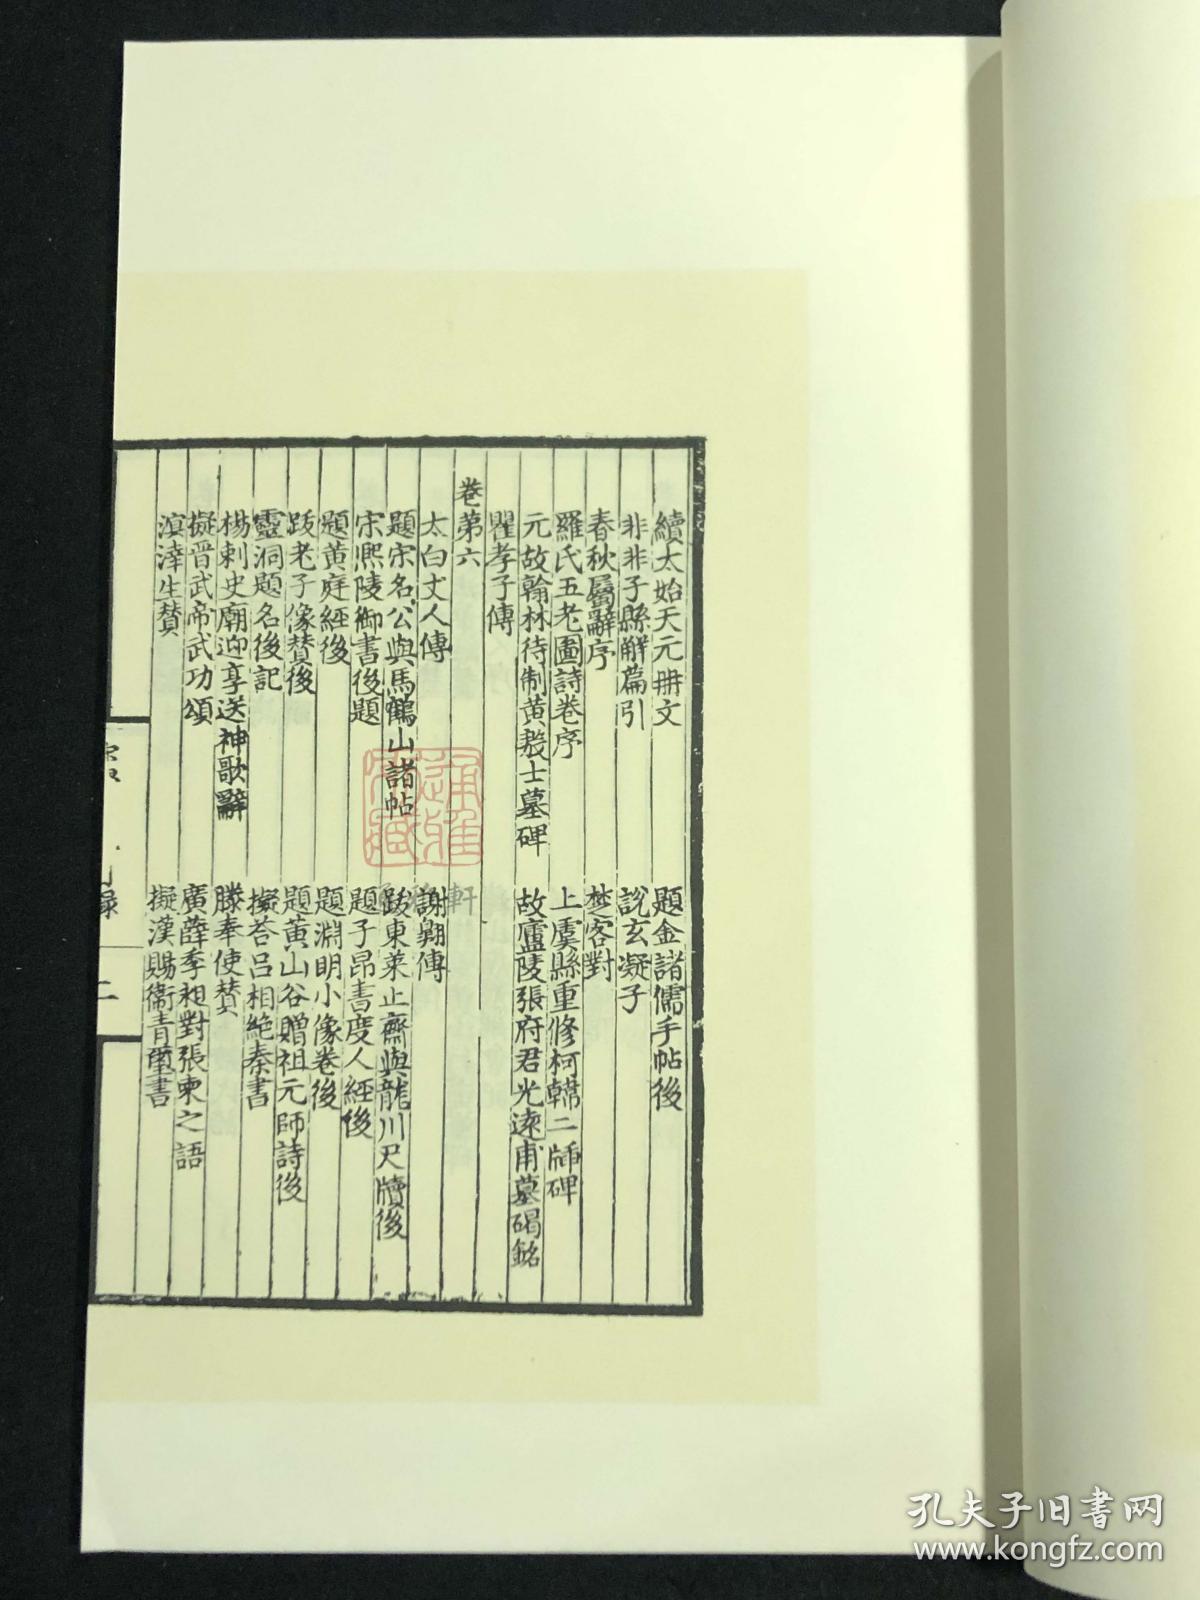 續太始天元冊文
題金諸儒手帖後
非非子縣解篇引
說玄凝子
春秋屬辭序
楚客對
羅氏五老圖詩卷序
上虞縣重修柯韓二牐碑
元故翰林待制黄殷士墓碑
故廬陵張府君光遠甫墓碣銘
瞿孝子傳
卷第六
太白丈人傳
謝翱傳
題宋名公與馬鶴山諸帖
跋東萊止齋與龍川尺牘後
宋熙陵御書後題
題子昂書度人經後
題黄庭經後
題淵明小像卷後
跋老子像贊後
題黄山谷贈祖元師詩後
靈洞題名後記
擬答呂相絶秦書
楊刺史廟迎享送神歌辭
滕奉使贊
擬晋武帝武功頌
廣薛季昶對張柬之語
溟涬生贊
擬漢賜衞青璽書
錄
二
孔夫子旧书网
www.kongfz.com